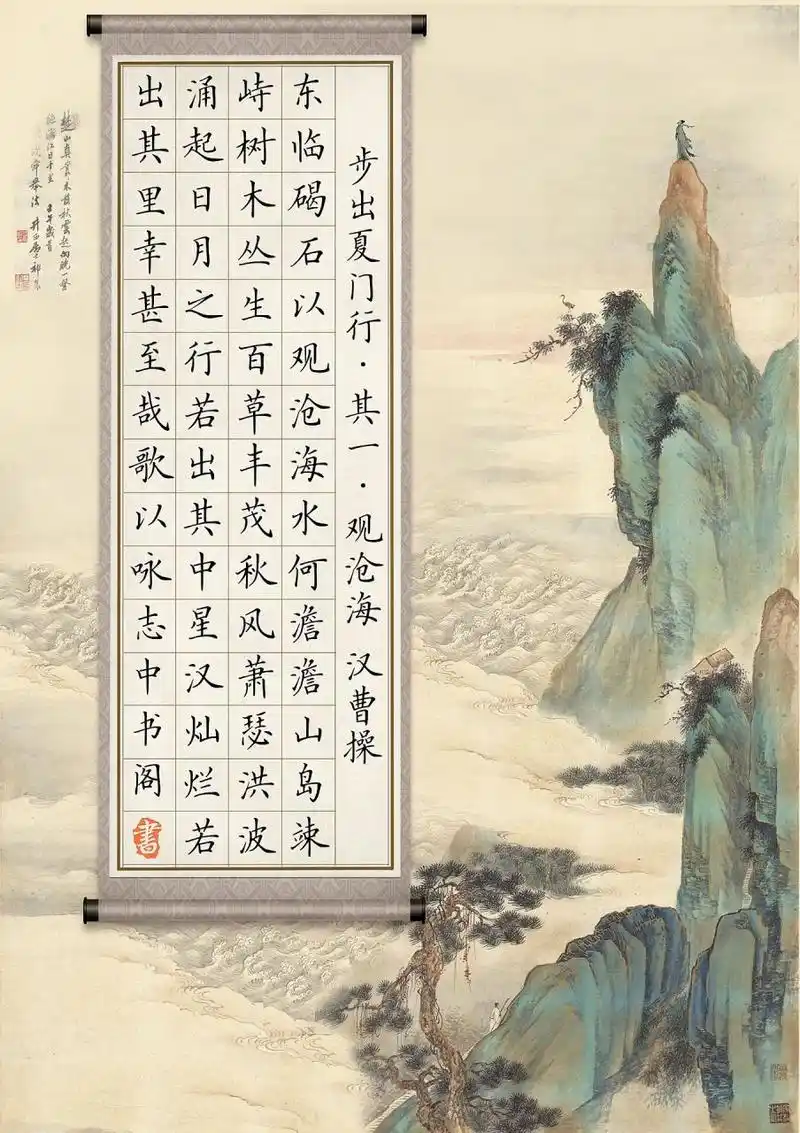 步出夏门行·其一·观沧海 汉曹操
东临碣石以观沧海水何澹澹山岛竦
峙树木丛生百草丰茂秋风萧瑟洪波
涌起日月之行若出其中星汉灿烂若
出其里幸甚至哉歌以咏志中书阁
書